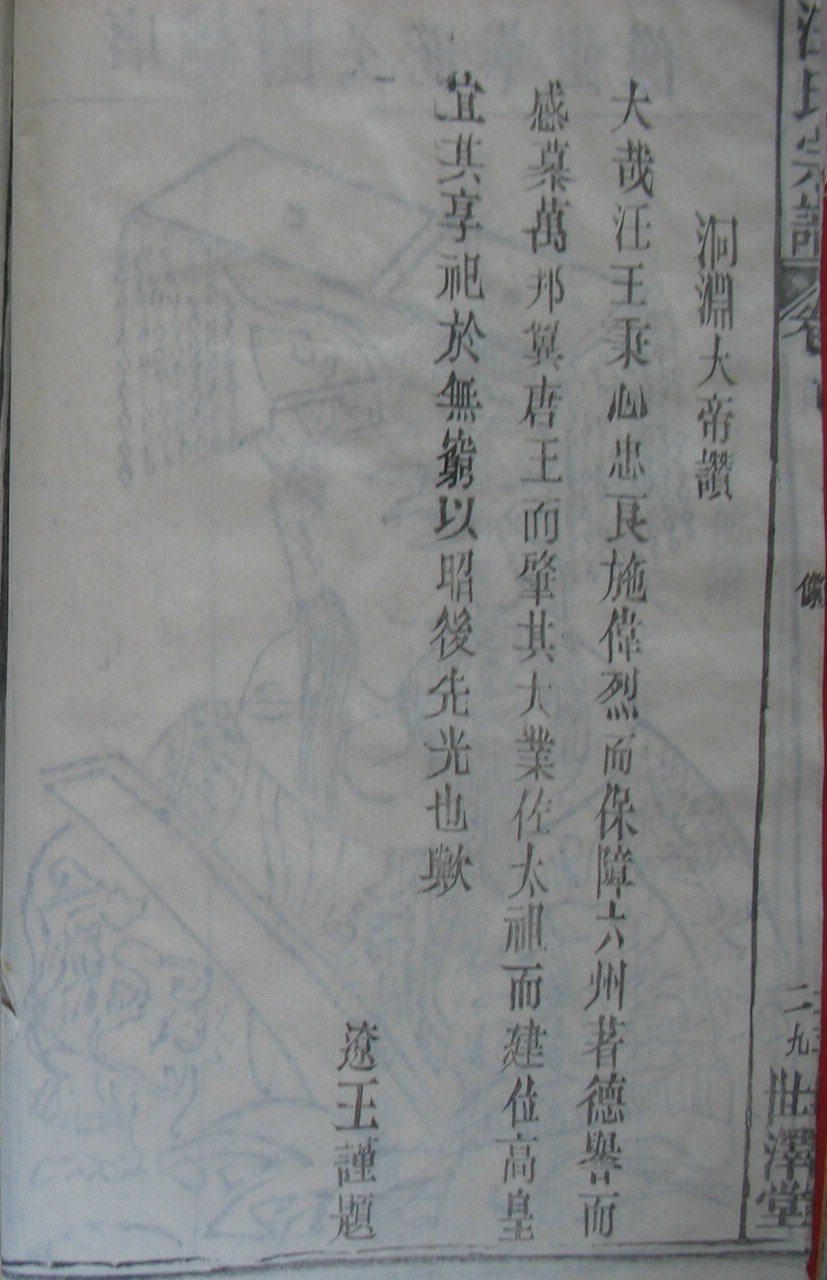 汪氏宗譜
卷首
像
二九
世澤堂
洞淵大帝讚
大哉汪王秉心忠良施偉烈而保障六州著德譽而
感慕萬邦翼唐王而肇其大業佐太祖而建位高皇
宜其享祀於無窮以昭後先光也歟
遼王謹題